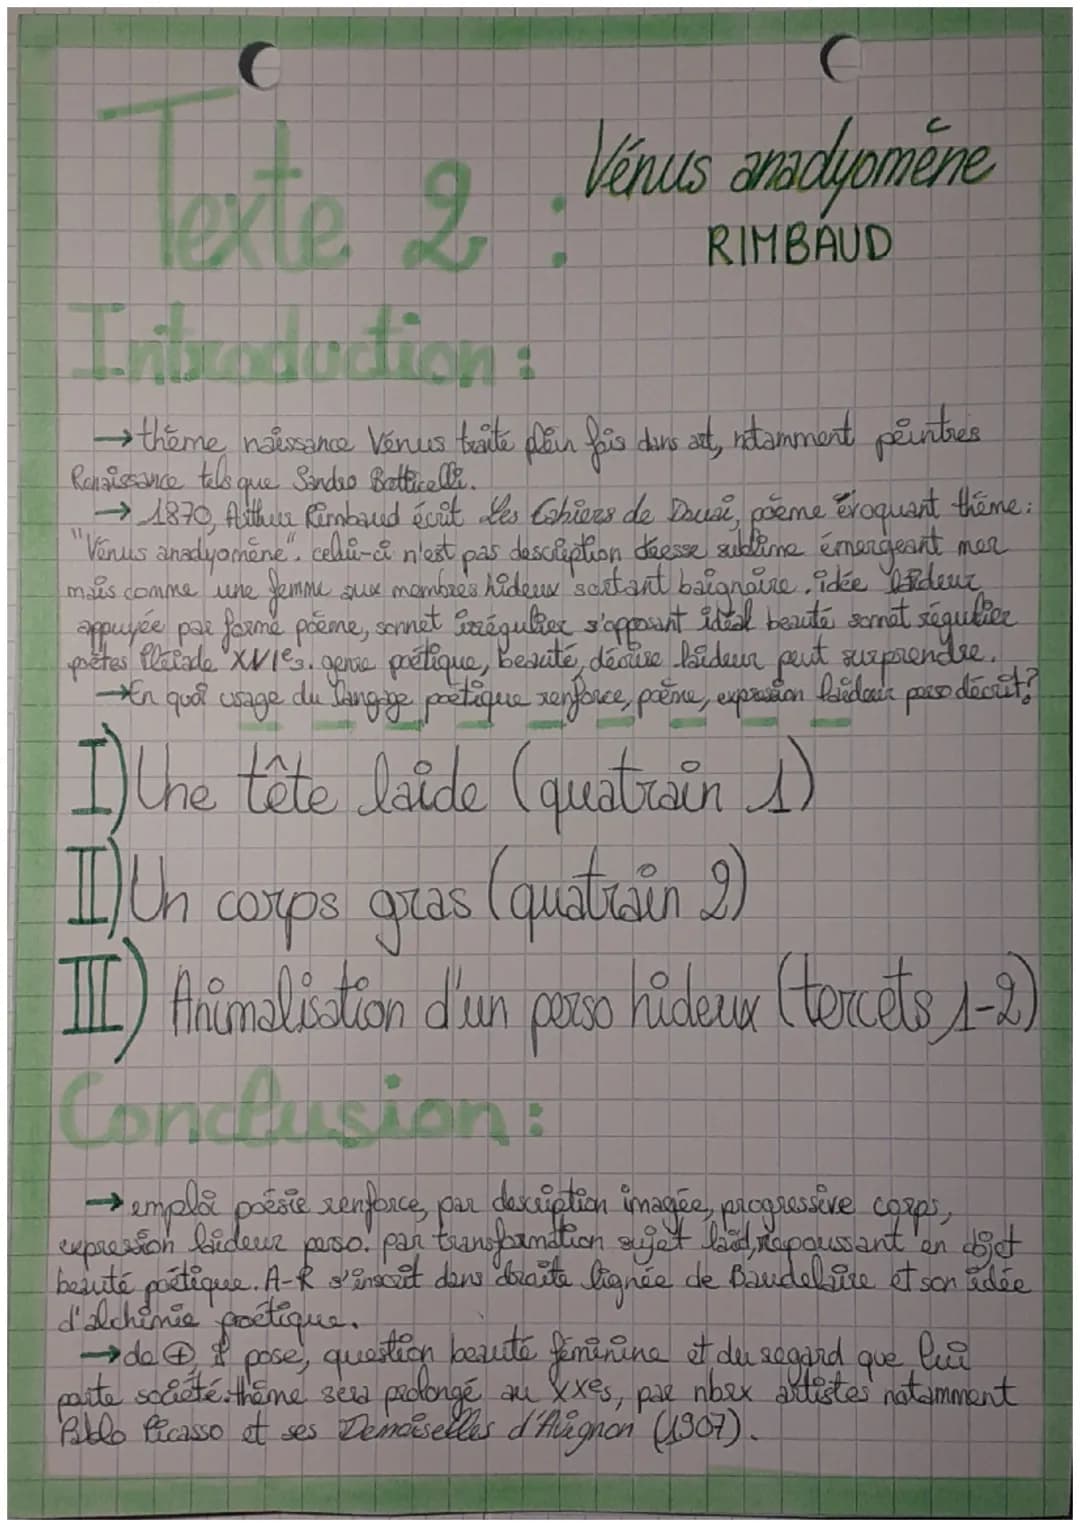 Texte 2 : Vénus anadyomène
RIMBAUD
Introduction :
→ thème naissance Vénus traité plein fois dans art, notamment peintres
Renaissance tels que Sandro Botticelli.
→ 1870, Arthur Rimbaud écrit Les Cahiers de Douai, poème évoquant thème :
"Vénus anadyomène". celui-ci n'est pas description déesse sublime émergeant mer
mais comme une femme aux membres hideux sortant baignoire. idée laideur
appuyée par forme poème, sonnet irrégulier s'opposant idéal beauté sonnet régulier
poètes Pléiade XVIes. genre poétique, beauté, décrire laideur peut surprendre.
→ En quoi usage du langage poétique renforce, poème, expression laideur perso décrit ?
I) Une tête laide (quatrain 1)
II) Un corps gras (quatrain 2)
III) Animalisation d'un perso hideux (tercets 1-2)
Conclusion :
→ emploi poésie renforce, par description imagée, progressive corps,
expression laideur perso. par transformation sujet laid, repoussant en objet
beauté poétique. A-R s'inscrit dans droite lignée de Baudelaire et son idée
d'alchimie poétique.
→ de ⊕, pose, question beauté féminine et du regard que lui
porte société. thème sera prolongé au XXes, par nbrx artistes notamment
Pablo Picasso et ses Demoiselles d'Avignon (1907).